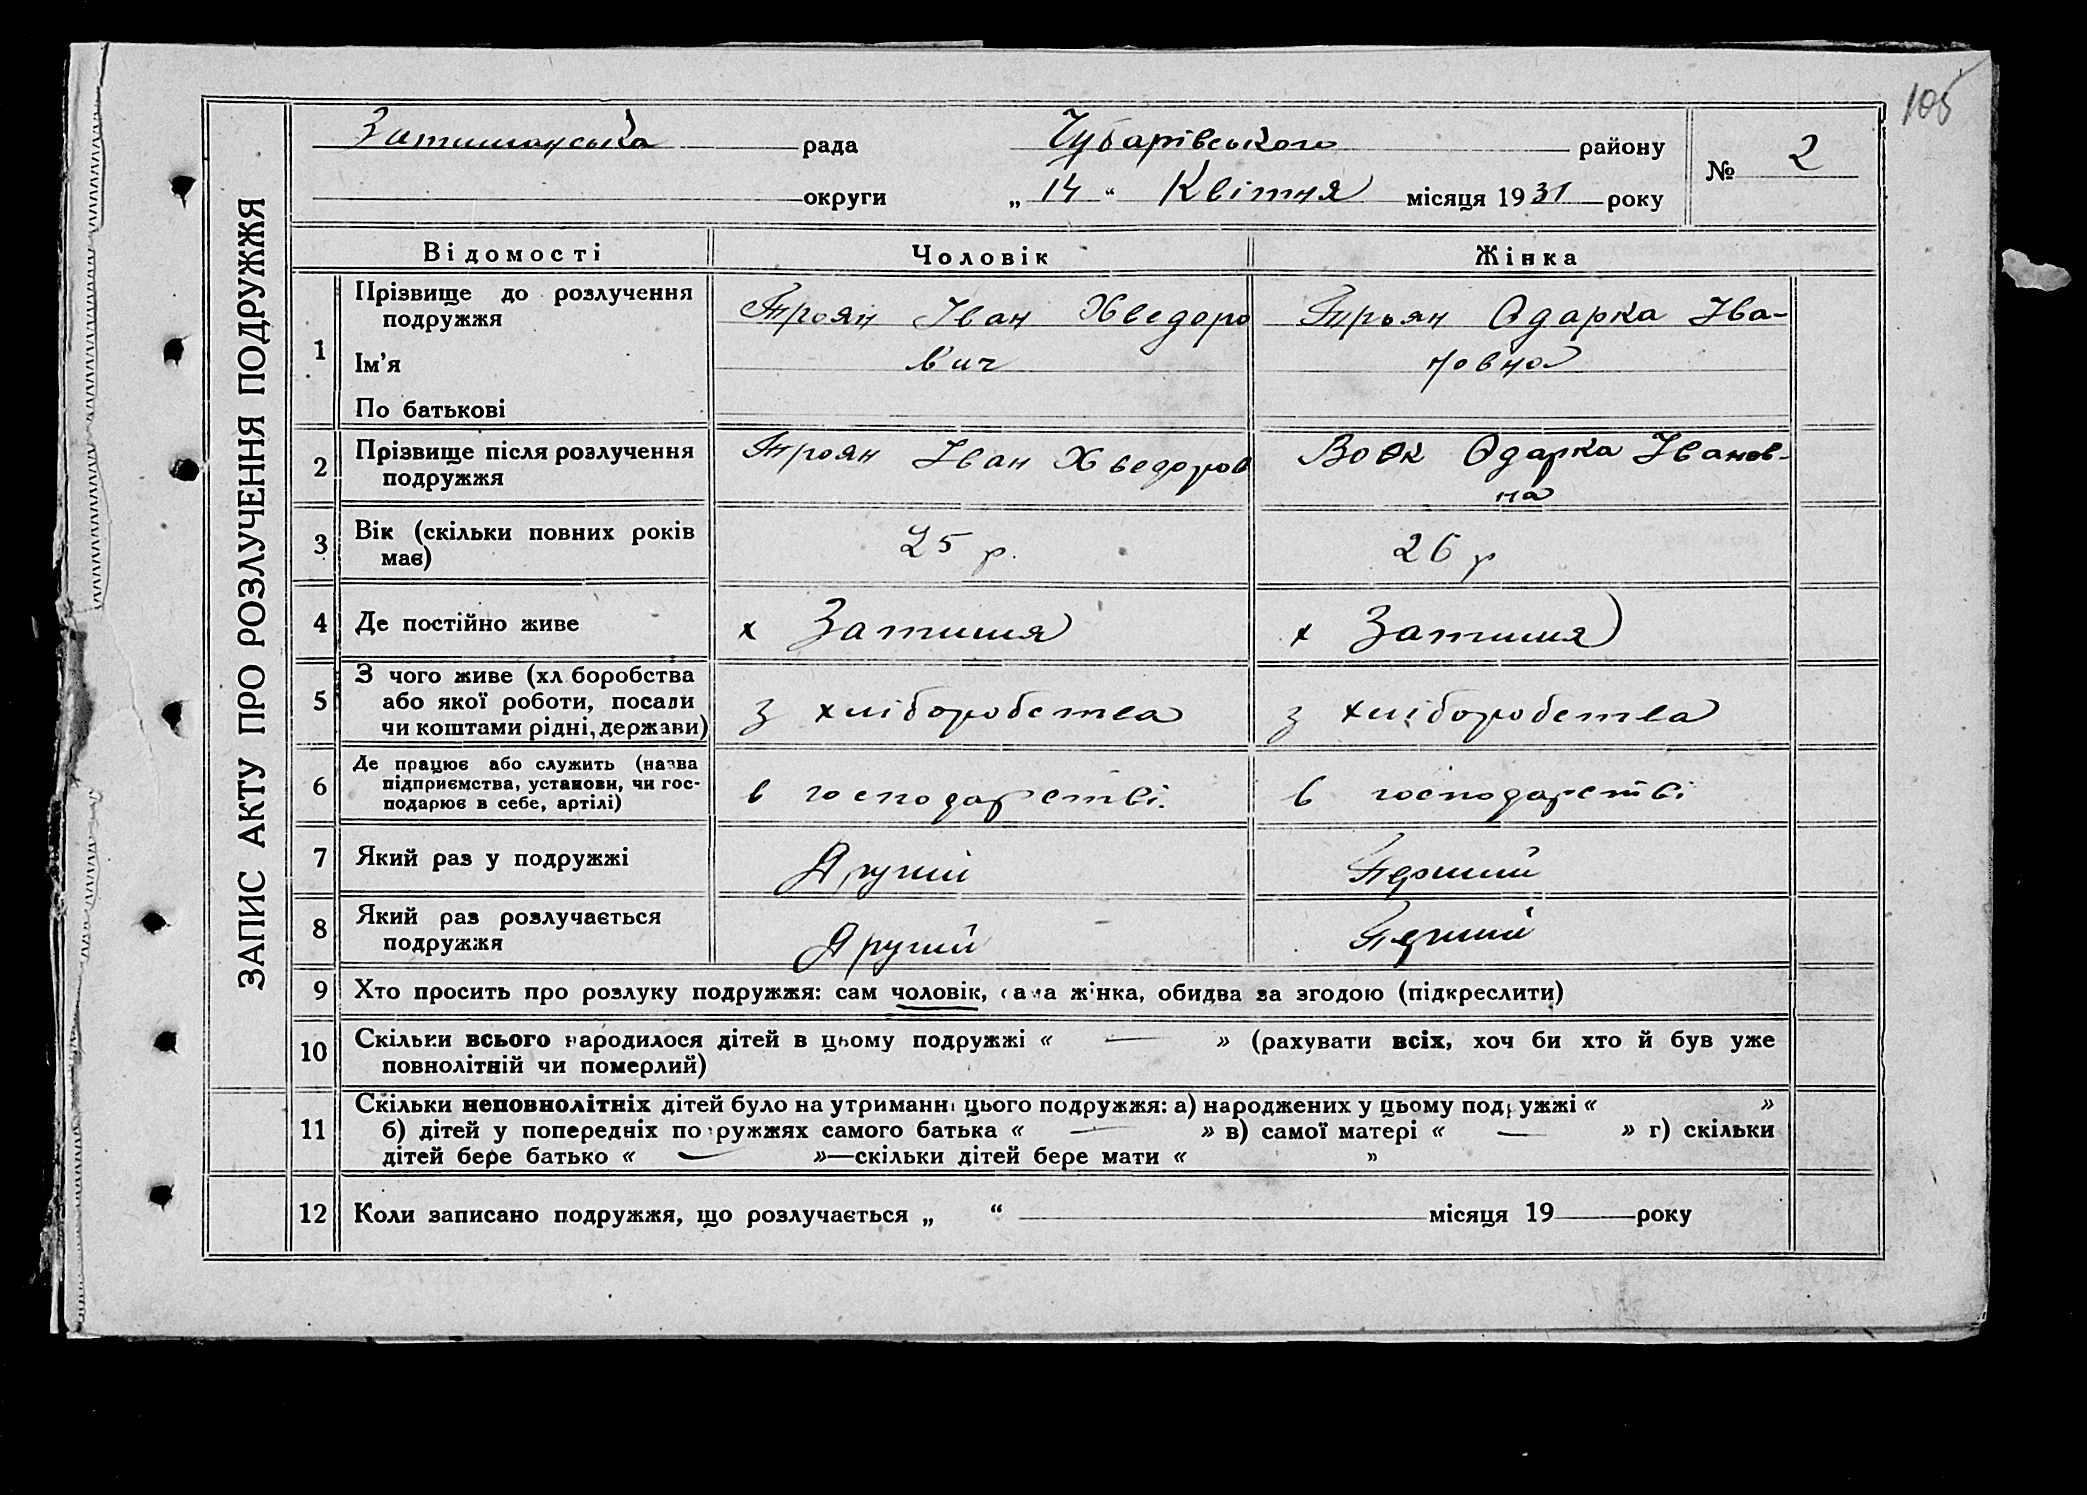 105
ЗАПИС АКТУ ПРО РОЗЛУЧЕННЯ ПОДРУЖЖЯ
Затишанська рада Чубарівського району № 2
округи „ 14 “ Квітня місяця 1931 року
Відомості Чоловік Жінка
1 Прізвище до розлучення подружжя Троян Іван Хведоро Троян Одарка Іва-
Ім'я вич новна
По батькові
2 Прізвище після розлучення Троян Іван Хведоров Вовк Одарка Іванов-
подружжя на
3 Вік (скільки повних років 25 р. 26 р
має)
4 Де постійно живе х Затишия х Затишия
5 З чого живе (хл боробства
або якої роботи, посади з хліборобства з хліборобства
чи коштами рідні, держави)
6 Де працює або служить (назва
підприємства, установи, чи гос- в господарстві. в господарстві
подарює в себе, артілі)
7 Який раз у подружжі Другий Перший
8 Який раз розлучається
подружжя Другий Перший
9 Хто просить про розлуку подружжя: сам чоловік, сама жінка, обидва за згодою (підкреслити)
10 Скільки всього народилося дітей в цьому подружжі « — » (рахувати всіх, хоч би хто й був уже
повнолітній чи померлий)
11 Скільки неповнолітніх дітей було на утриманні цього подружжя: а) народжених у цьому подружжі « »
б) дітей у попередніх подружжях самого батька « — » в) самої матері « — » г) скільки
дітей бере батько « — »—скільки дітей бере мати « »
12 Коли записано подружжя, що розлучається „ “ місяця 19 року